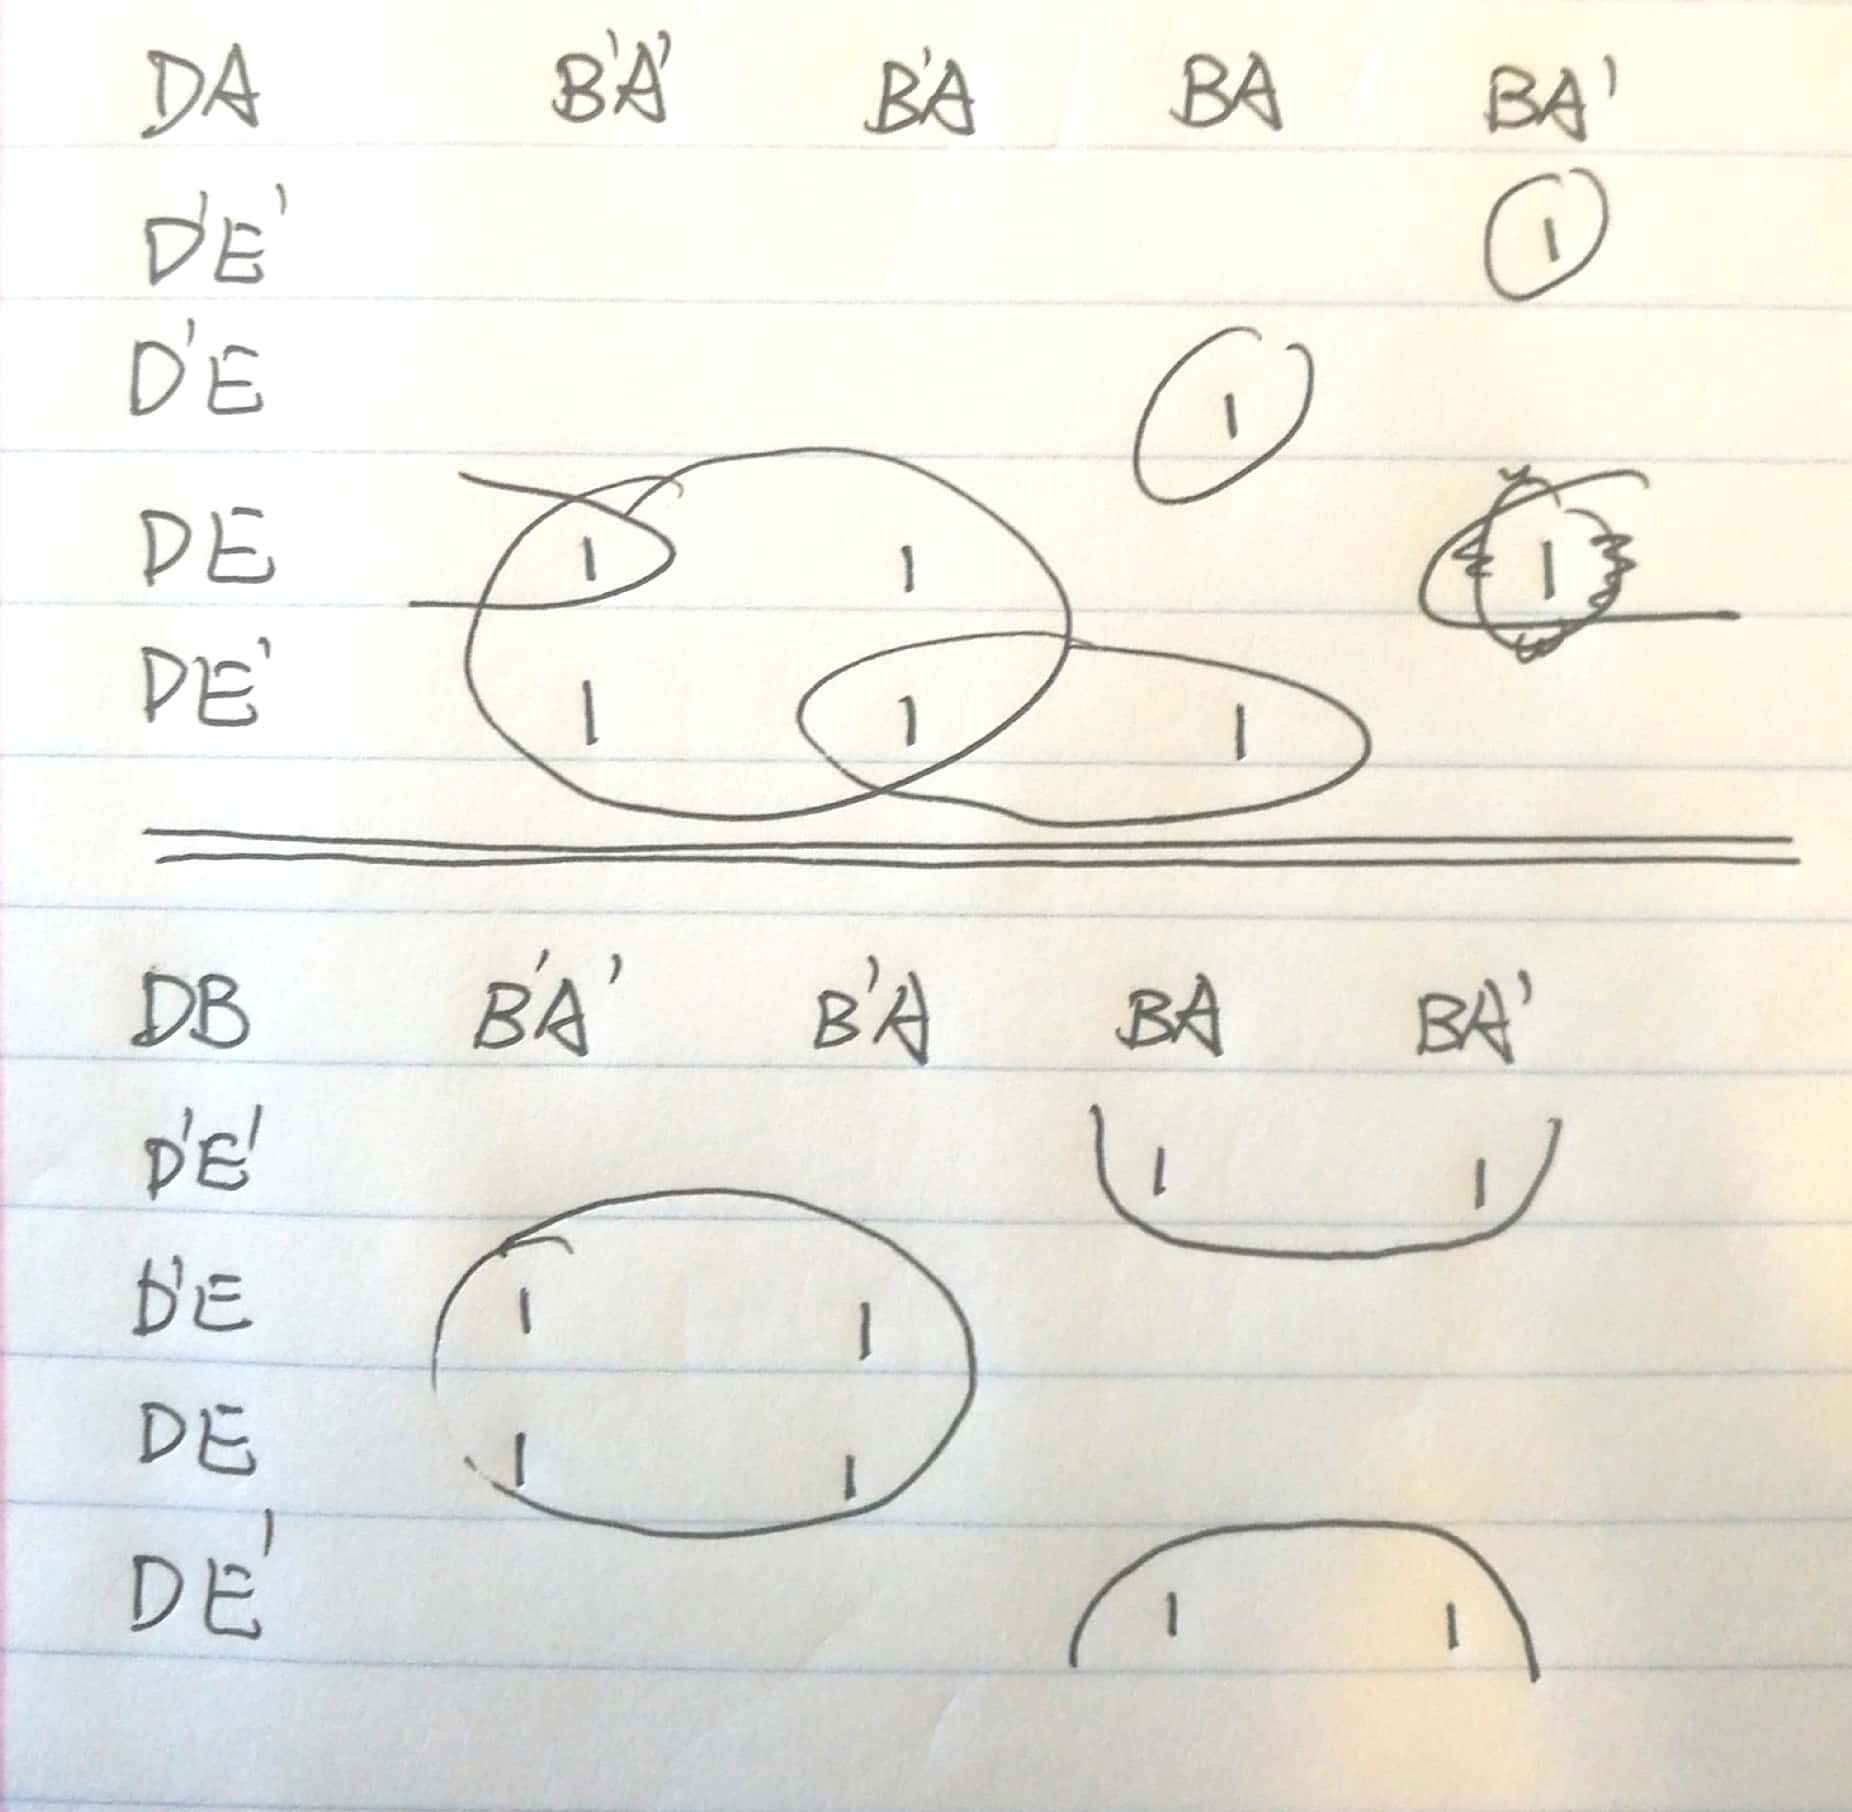 DA B'A' B'A BA BA'
D'E' 1
D'E 1
DE 1 1 1
DE' 1 1 1
DB B'A' B'A BA BA'
D'E' 1 1
D'E 1 1
DE 1 1
DE' 1 1